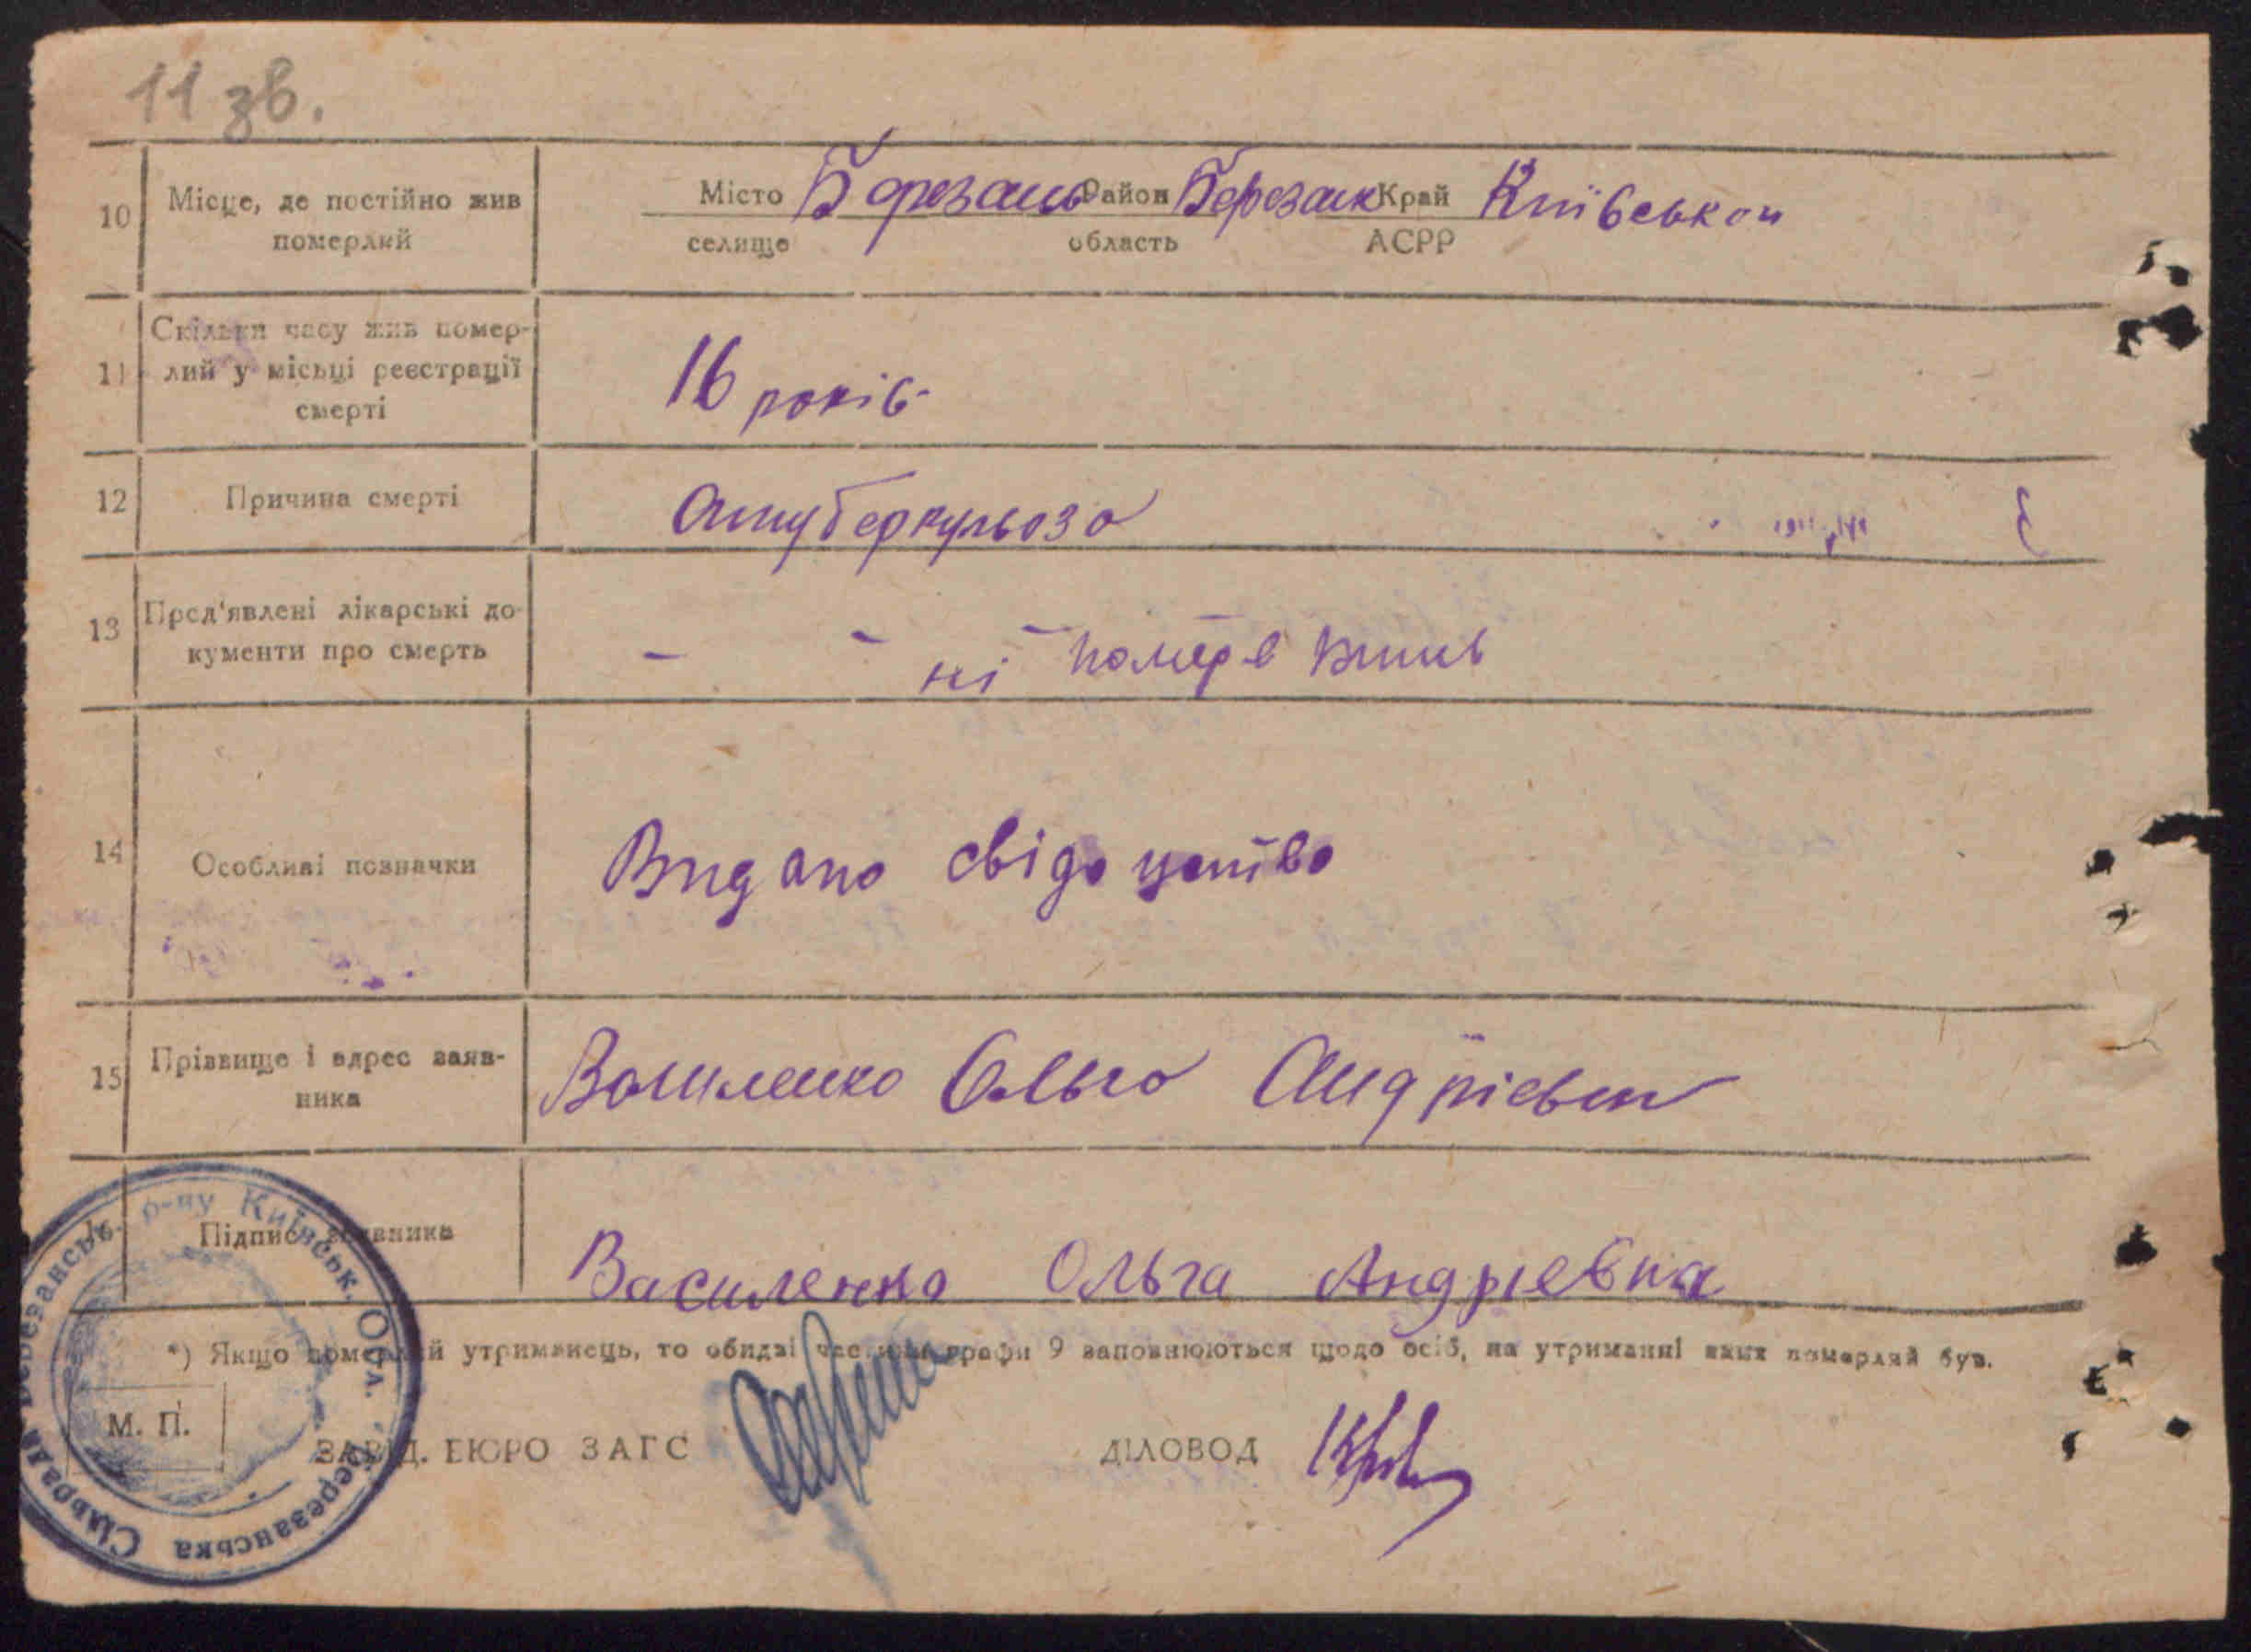 11 зв.
10 Місце, де постійно жив померлий
Місто Березань Район Березанк Край Київськои
селище область АСРР
11 Скільки часу жив помер-
лий у місьці реєстрації
смерті
16 років
12 Причина смерті
От туберкульоза
13 Пред'явлені лікарські до-
кументи про смерть
ні
14 Особливі позначки
Видано свідоцтво
15 Прізвище і адрес заяв-
ника
Василенко Ольга Андрієвна
16 Підпис заявника
Василенко Ольга Андрієвна
*) Якщо померлий утриманець, то обидві частини графи 9 заповнюються щодо осіб, на утриманні яких померлий був.
М. П.
ЗАВІД. БЮРО ЗАГС ДІЛОВОД
Березанська Сільрада Березанськ. р-ну Київськ. Обл.